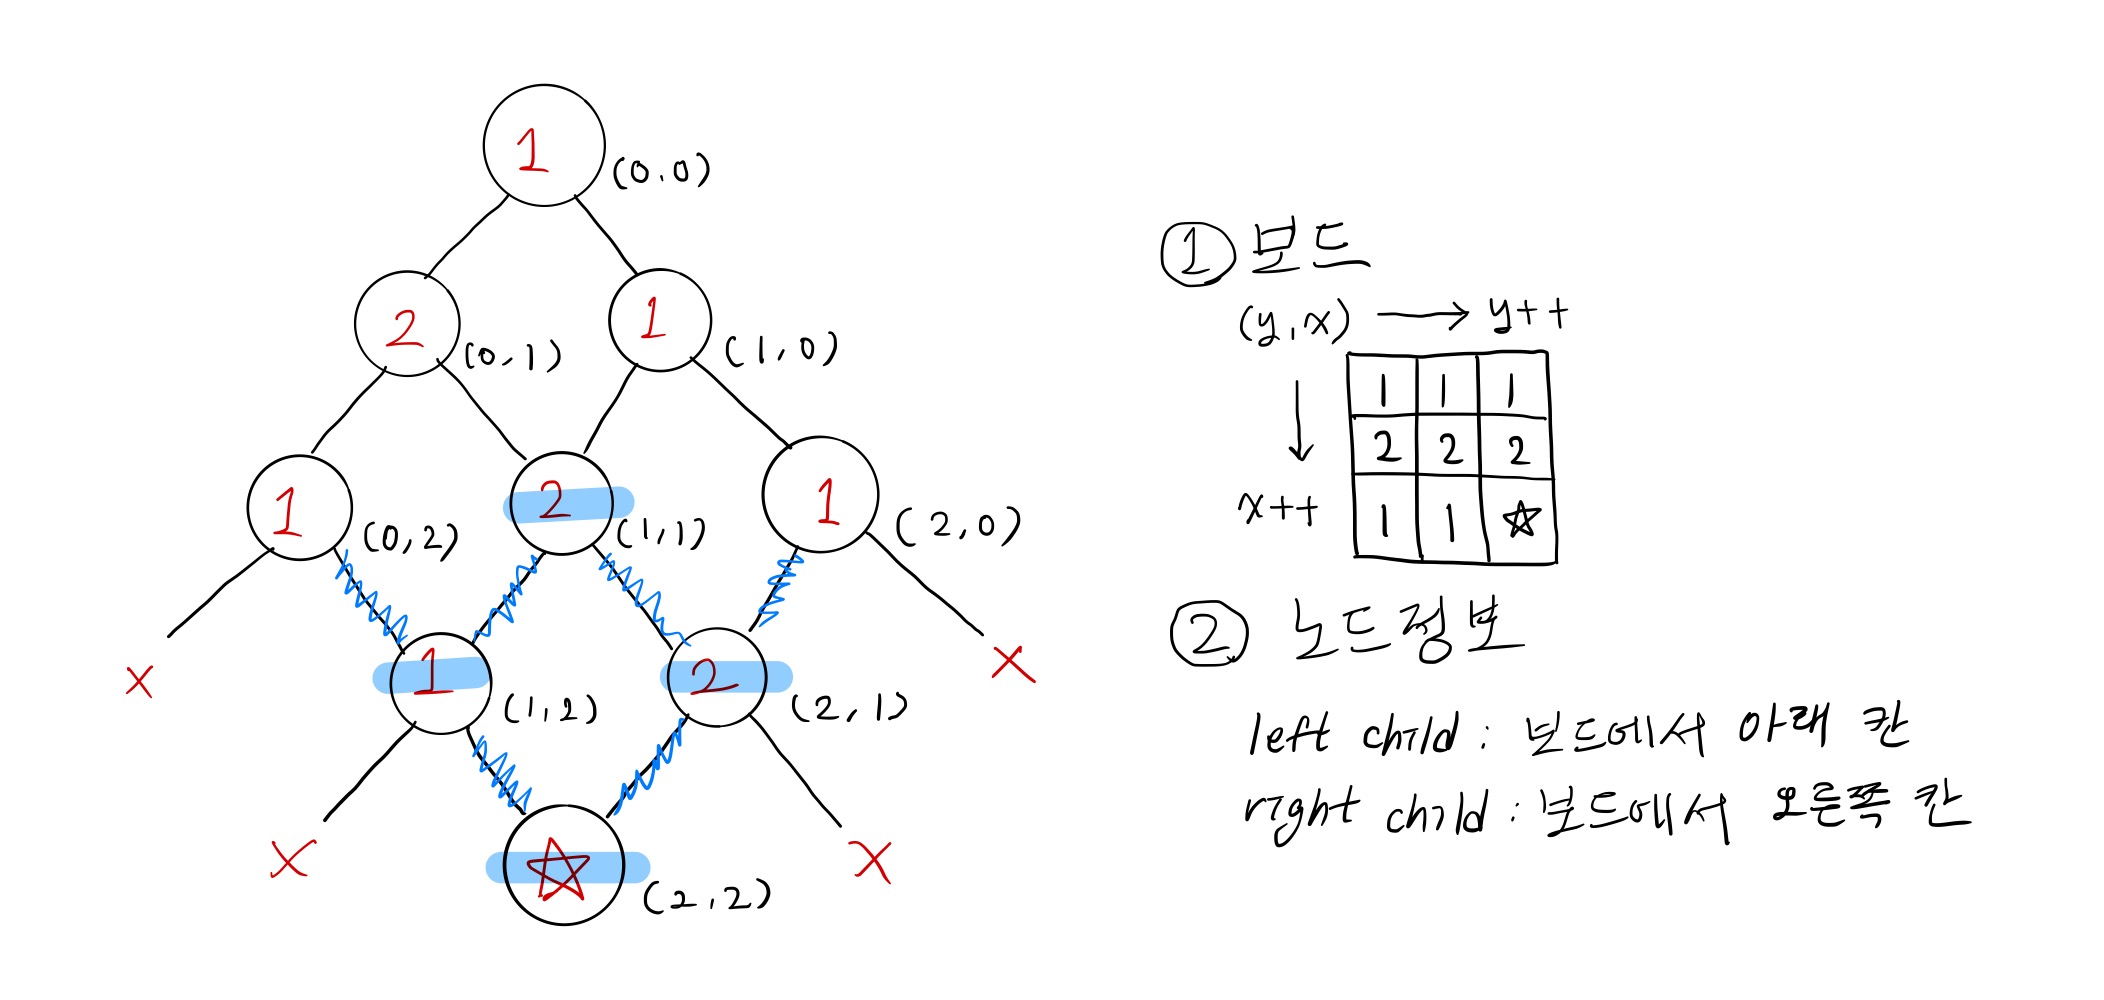 1
(0,0)
2
(0,1)
1
(1,0)
1
(0,2)
2
(1,1)
1
(2,0)
x
1
(1,2)
2
(2,1)
x
x
☆
(2,2)
x
① 보드
(y,x) → y++
↓
x++
1 1 1
2 2 2
1 1 ☆
② 노드정보
left child : 보드에서 아래 칸
right child : 보드에서 오른쪽 칸